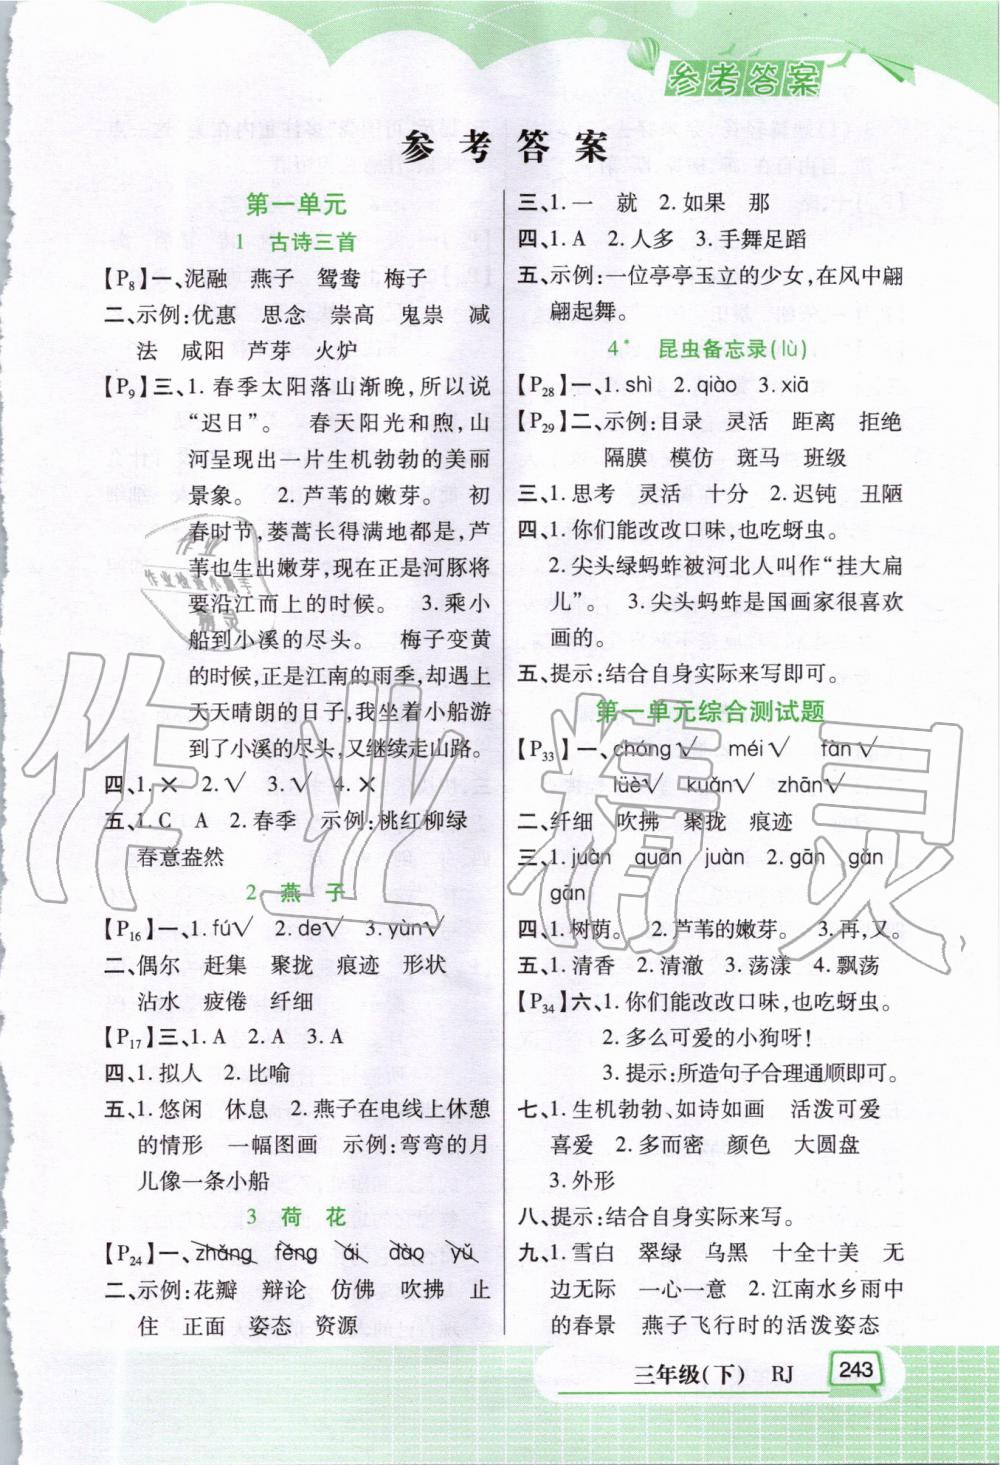 参考答案
参 考 答 案
第一单元
1 古诗三首
【P8】一、泥融 燕子 鸳鸯 梅子
二、示例:优惠 思念 崇高 鬼祟 减
法 咸阳 芦芽 火炉
【P9】三、1. 春季太阳落山渐晚,所以说
“迟日”。 春天阳光和煦,山
河呈现出一片生机勃勃的美丽
景象。 2. 芦苇的嫩芽。 初
春时节,蒌蒿长得满地都是,芦
苇也生出嫩芽,现在正是河豚将
要沿江而上的时候。 3. 乘小
船到小溪的尽头。 梅子变黄
的时候,正是江南的雨季,却遇上
天天晴朗的日子,我坐着小船游
到了小溪的尽头,又继续走山路。
四、1. × 2. √ 3. √ 4. ×
五、1. C A 2. 春季 示例:桃红柳绿
春意盎然
2 燕 子
【P16】一、1. fú√ 2. de√ 3. yùn√
二、偶尔 赶集 聚拢 痕迹 形状
沾水 疲倦 纤细
【P17】三、1. A 2. A 3. A
四、1. 拟人 2. 比喻
五、1. 悠闲 休息 2. 燕子在电线上休憩
的情形 一幅图画 示例:弯弯的月
儿像一条小船
3 荷 花
【P24】一、zhǎng fěng ái dào yǔ
二、示例:花瓣 辩论 仿佛 吹拂 止
住 正面 姿态 资源
三、1. 一 就 2. 如果 那
四、1. A 2. 人多 3. 手舞足蹈
五、示例:一位亭亭玉立的少女,在风中翩
翩起舞。
4* 昆虫备忘录(lù)
【P28】一、1. shì 2. qiào 3. xiā
【P29】二、示例:目录 灵活 距离 拒绝
隔膜 模仿 斑马 班级
三、1. 思考 灵活 十分 2. 迟钝 丑陋
四、1. 你们能改改口味,也吃蚜虫。
2. 尖头绿蚂蚱被河北人叫作“挂大扁
儿”。 3. 尖头蚂蚱是国画家很喜欢
画的。
五、提示:结合自身实际来写即可。
第一单元综合测试题
【P33】一、chóng√ méi√ fàn√
lüè√ kuǎn√ zhān√
二、纤细 吹拂 聚拢 痕迹
三、1. juàn quān juàn 2. gān gǎn
gān
四、1. 树荫。 2. 芦苇的嫩芽。 3. 再,又。
五、1. 清香 2. 清澈 3. 荡漾 4. 飘荡
【P34】六、1. 你们能改改口味,也吃蚜虫。
2. 多么可爱的小狗呀!
3. 提示:所造句子合理通顺即可。
七、1. 生机勃勃、如诗如画 活泼可爱
喜爱 2. 多而密 颜色 大圆盘
3. 外形
八、提示:结合自身实际来写。
九、1. 雪白 翠绿 乌黑 十全十美 无
边无际 一心一意 2. 江南水乡雨中
的春景 燕子飞行时的活泼姿态
三年级(下) RJ 243
作业精灵